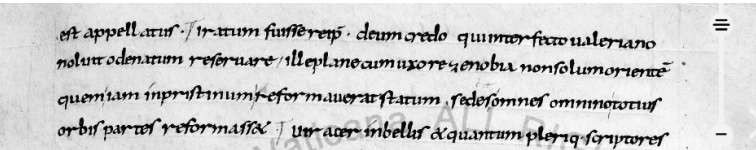 est appellatus · Iratum fuisse reip̄ · deum credo qui interfecto ualeriano
noluit odenatum reseruare / ille plane cum uxore zenobia non solum orientē
quem iam in pristinum reformauerat statum · sed et omnes omnino totius
orbis partes reformasset / uir acer in bellis & quantum pleriq· scriptores